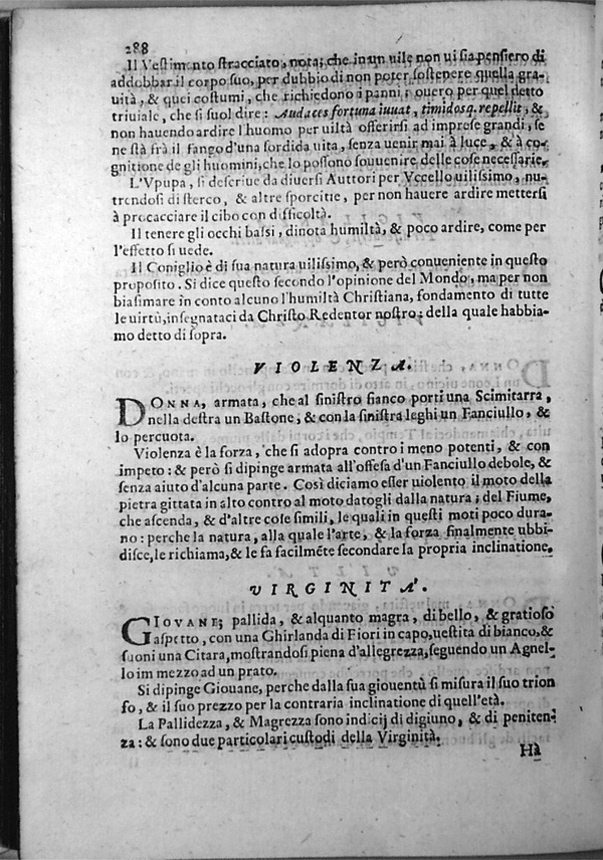 288
Il Vestimento stracciato, nota; che in un uile non ui sia pensiero di
addobbar il corpo suo, per dubbio di non poter sostenere quella gra-
uità, & quei costumi, che richiedono i panni; ouero per quel detto
triuiale, che si suol dire: Audaces fortuna iuuat, timidosq. repellit, &
non hauendo ardire l'huomo per uiltà offerirsi ad imprese grandi, se
ne stà frà il fango d'una sordida uita, senza uenir mai à luce, & à co-
gnitione de gli huomini, che lo possono souuenire delle cose necessarie.
L'Vpupa, si descriue da diuersi Auttori per Vccello uilissimo, nu-
trendosi di sterco, & altre sporcitie, per non hauere ardire mettersi
à procacciare il cibo con difficoltà.
Il tenere gli occhi bassi, dinota humiltà, & poco ardire, come per
l'effetto si uede.
Il Coniglio è di sua natura uilissimo, & però conueniente in questo
proposito. Si dice questo secondo l'opinione del Mondo, ma per non
biasimare in conto alcuno l'humiltà Christiana, fondamento di tutte
le uirtù, insegnataci da Christo Redentor nostro; della quale habbia-
mo detto di sopra.
VIOLENZA.
DONNA, armata, che al sinistro fianco porti una Scimitarra,
nella destra un Bastone, & con la sinistra leghi un Fanciullo, &
lo percuota.
Violenza è la forza, che si adopra contro i meno potenti, & con
impeto: & però si dipinge armata all'offesa d'un Fanciullo debole, &
senza aiuto d'alcuna parte. Così diciamo esser uiolento il moto della
pietra gittata in alto contro al moto datogli dalla natura; del Fiume,
che ascenda, & d'altre cose simili, le quali in questi moti poco dura-
no: perche la natura, alla quale l'arte, & la forza finalmente ubbi-
disce, le richiama, & le fa facilmẽte secondare la propria inclinatione.
VIRGINITA'.
GIOVANE; pallida, & alquanto magra, di bello, & gratioso
aspetto, con una Ghirlanda di Fiori in capo, uestita di bianco, &
suoni una Citara, mostrandosi piena d'allegrezza, seguendo un Agnel-
lo im mezzo ad un prato.
Si dipinge Giouane, perche dalla sua giouentù si misura il suo trion
fo, & il suo prezzo per la contraria inclinatione di quell'età.
La Pallidezza, & Magrezza sono indicij di digiuno, & di peniten-
za: & sono due particolari custodi della Virginità.
Hà